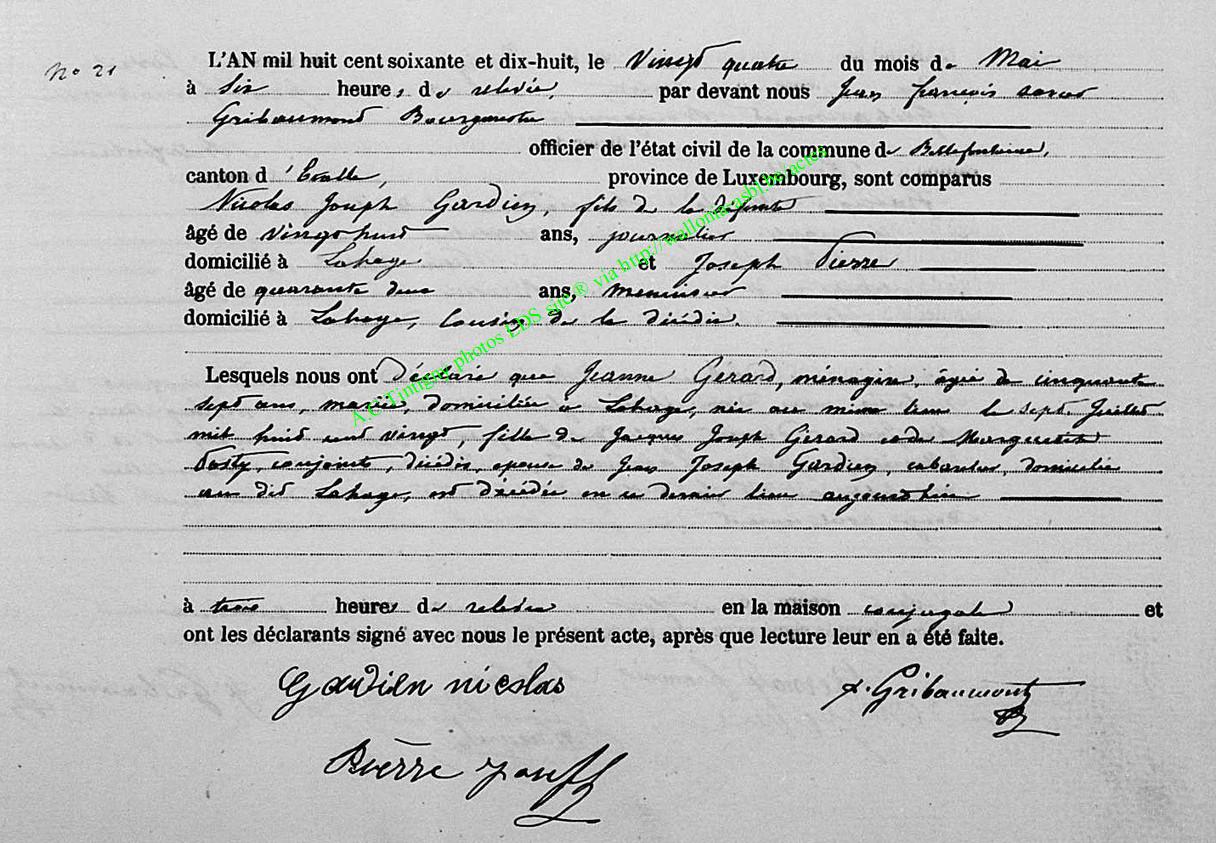 No 21
L'AN mil huit cent soixante et dix-huit, le Vingt quatre du mois de Mai
à six heures de relevée, par devant nous Jean françois
Gribaumont Bourgmestre
officier de l'état civil de la commune de Bellefontaine,
canton d'Etalle, province de Luxembourg, sont comparus
Nicolas Joseph Gardien, fils de la défunte
âgé de vingt huit ans, journalier
domicilié à Lahage et Joseph Pierre
âgé de quarante deux ans, menuisier
domicilié à Lahage, Cousin de la décédée.
Lesquels nous ont déclaré que Jeanne Gerard, ménagère, âgée de cinquante
sept ans, mariée, domiciliée à Lahage, née au même lieu le sept Juillet
mil huit cent vingt, fille de Jacques Joseph Gerard et de Marguerite
conjoints, décédés, épouse de Jean Joseph Gardien, cabaretier, domicilié
au dit Lahage, est décédée en ce dernier lieu aujourd'hui
à trois heures de relevée en la maison conjugale et
ont les déclarants signé avec nous le présent acte, après que lecture leur en a été faite.
Gardien nicolas
Gribaumont
Pierre Joseph
A.C Tintigny photos LDS site® via http://wallonia.asbl.be/actes